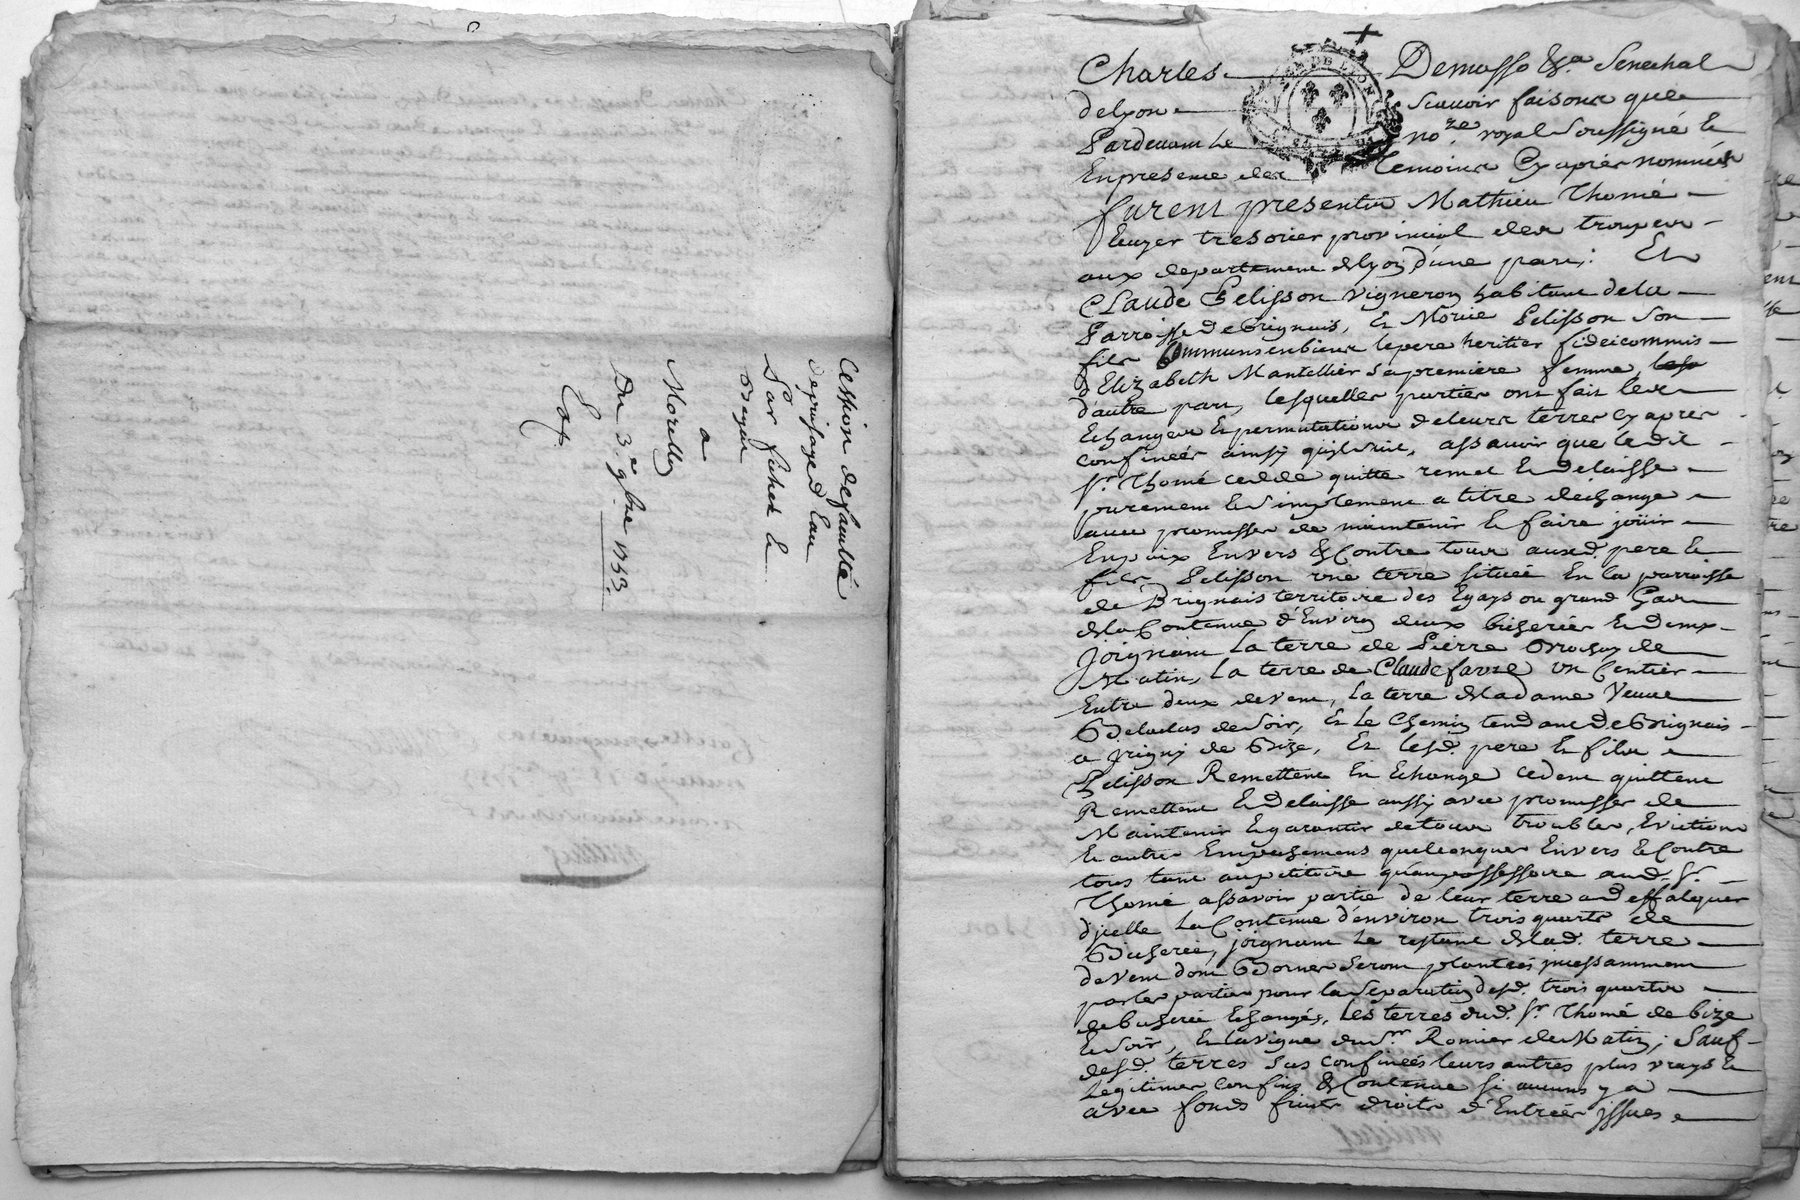 Cession de faculté
de prisage d'Eau
Par fichet &
a
Morelly
Du 3e 9bre 1753.
Exp.
Charles Demasso Esr. Senechal
delyon scavoir faisons que
Pardevant Le nore. royal Soussigné &
En presence des temoins Cy apres nommés
furent presents Mathieu Thomé
Ecuyer tresorier provincial des troupes
aux departement delyon d'une part; Et
CLaude Pelisson vigneron habitant dela
Parroisse de Brignais, & Morice Pelisson son
fils Communs en biens le pere heritier fideicommis
d'Elizabeth Mantellier sa premiere femme
d'autre part, lesquelles parties ont fait les
Echanges & permutations de leurs terres cy apres
confinées ainsy qu'il suit, assavoir que ledit
Sr. Thomé cedde quitte remet & delaisse
purement & simplement a titre d'echange
avec promesse de maintenir & faire joüir
En paix Envers & Contre tous auxd. pere &
fils Pelisson une terre située En la parroisse
de Brignais territoire des Egays ou grand
dela Contenue d'Environ deux bicherées & demy
Joignant La terre de Pierre de
Matin, La terre de Claude favre un Sentier
Entre deux de vent, La terre de Madame Veuve
de Soir, & Le Chemin tendant de Brignais
a Irigny de Bize, Et lesd. pere & fils
Pelisson Remettent En Echange cedent quittent
Remettent & delaisse aussy avec promesse de
Maintenir & garantir de tous troubles, Evictions
& autres Empechemens quelconques Envers & Contre
tous tant au petitoire qu'au possessoire aud. Sr.
Thomé assavoir partie de leur terre a deffalquer
d'icelle La Contenue d'environ trois quarts de
Bicherée, joignant Le restant de lad. terre
de vent dont Bornes seront plantées
par les parties pour la Separation desd. trois quarts
de bicherée Echangés, Les terres dud. Sr. Thomé de bize
& soir, & la vigne du Sr. Romier de Matin; Sauf
desd. terres sus confinées leurs autres plus vrays &
Legitimes confins & Contenue si aucuns y a
avec fonds fruits droits d'Entrées issues